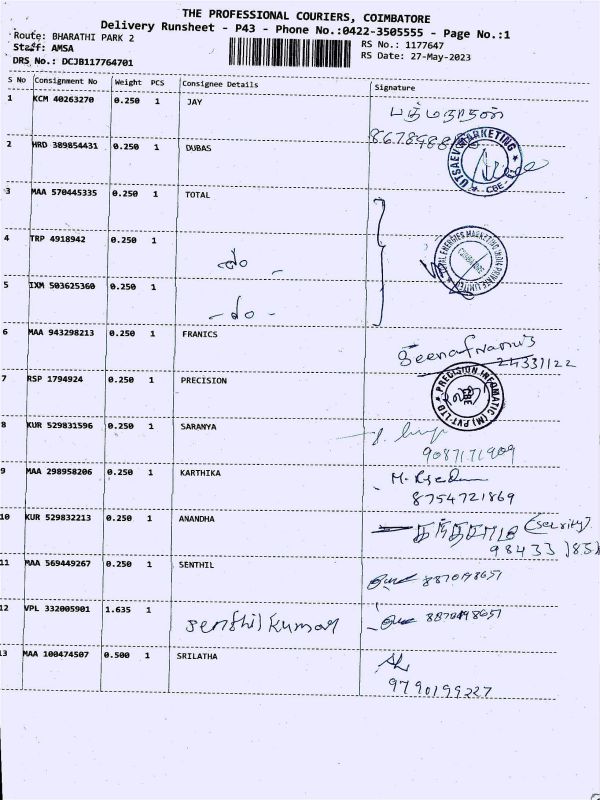 THE PROFESSIONAL COURIERS, COIMBATORE
Delivery Runsheet - P43 - Phone No.:0422-3505555 - Page No.:1
Route: BHARATHI PARK 2
RS No.: 1177647
Staff: AMSA
RS Date: 27-May-2023
DRS No.: DCJB117764701
S No Consignment No Weight PCS Consignee Details Signature
1 KCM 40263270 0.250 1 JAY
பத்மநாதன்
2 HRD 389854431 0.250 1 DUBAS
MARKETING CBE
3 MAA 570445335 0.250 1 TOTAL
4 TRP 4918942 0.250 1 - do -
TOTAL ENERGIES MARKETING INDIA PRIVATE LIMITED COIMBATORE
5 IXM 503625360 0.250 1 - do -
6 MAA 943298213 0.250 1 FRANICS
24331122
7 RSP 1794924 0.250 1 PRECISION
PRECISION INFOMATIC (M) PVT-LTD CBE
8 KUR 529831596 0.250 1 SARANYA
9087171909
9 MAA 298958206 0.250 1 KARTHIKA
8754721869
10 KUR 529832213 0.250 1 ANANDHA
(Security).
11 MAA 569449267 0.250 1 SENTHIL
8870498651
12 VPL 332005901 1.635 1 Senthil Kumar
8870498651
13 MAA 100474507 0.500 1 SRILATHA
9790199227